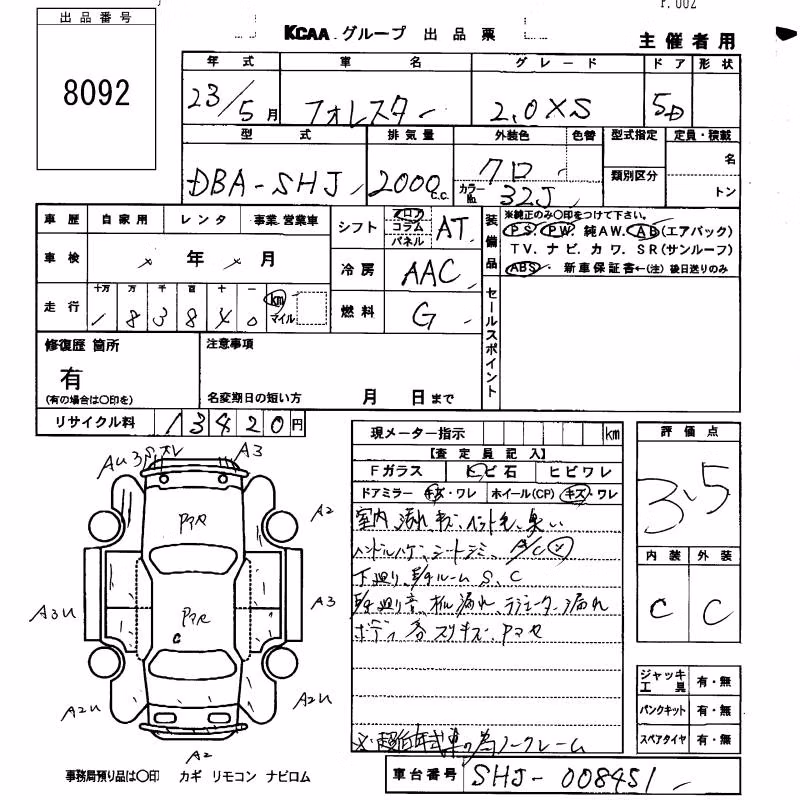 出品番号
8092
KCAA グループ 出品票
主催者用
年式 車名 グレード ドア 形状
23/5月 フォレスター 2.0XS 5D
型式 排気量 外装色 色替 型式指定 定員・積載
DBA-SHJ 2000c.c. クロ カラーNo. 32J 類別区分 名
トン
車歴 自家用 レンタ 事業.営業車
シフト フロア コラム パネル AT
装備品 ※純正のみ〇印をつけて下さい。
PS. PW. 純AW. AB(エアバック)
TV. ナビ. カワ. SR(サンルーフ)
ABS. 新車保証書←(注) 後日送りのみ
車検 × 年 × 月
冷房 AAC
走行 十万 万 千 百 十 一
183840 km マイル
燃料 G
セールスポイント
修復歴 箇所 注意事項
有
(有の場合は〇印を) 名変期日の短い方 月 日まで
リサイクル料 13420円
現メーター指示 km
評価点
3.5
【査定員記入】
Fガラス トビ石 ヒビワレ
ドアミラー キズ・ワレ ホイール(CP) キズ・ワレ
室内、汚れ、キズ、ペット毛、臭い
ハンドルハゲ、シートシミ、A/C
下廻り、E/gルーム S、C
E/g廻り音、オイル漏れ、ラジエーター漏れ
ボディ各スリキズ、アマセ
※超低年式車の為ノークレーム
内装 外装
C C
ジャッキ 工具 有・無
パンクキット 有・無
スペアタイヤ 有・無
AU3 A3
A2
A3U
A3
A2U
A2U
A2
C
事務局預り品は〇印 カギ リモコン ナビロム
車台番号 SHJ-008451